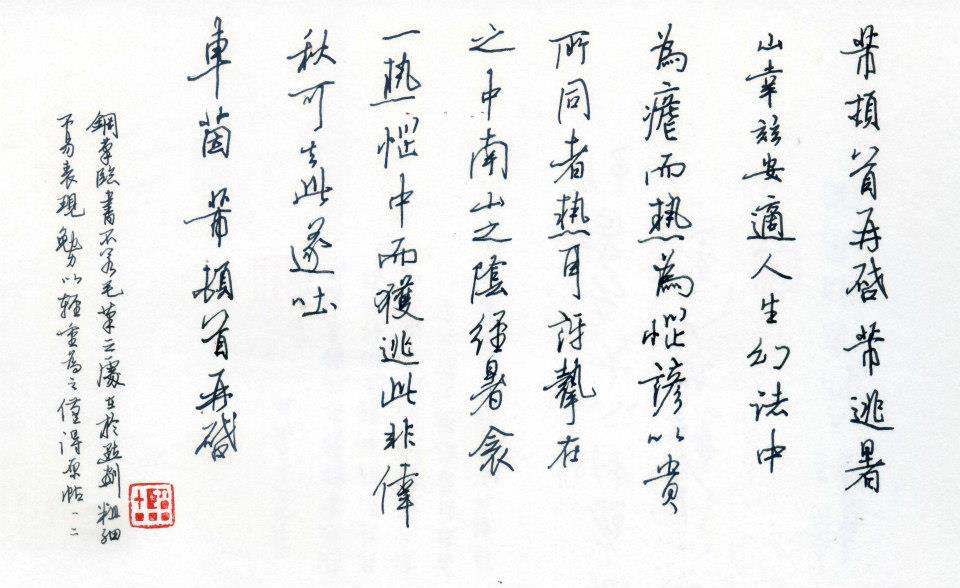 芾頓首再啓芾逃暑
山幸茲安適人生幻法中
為瘧而熱為惱諺以貴
所同者熱耳訝摯在
之中南山之陰經暑衾
一熱惱中而獲逃此非偉
秋可去此遂吐
車茵芾頓首再啓
鋼筆臨書不若毛筆之處在於點劃粗細
不易表現勉力以輕重為之僅得原帖一二